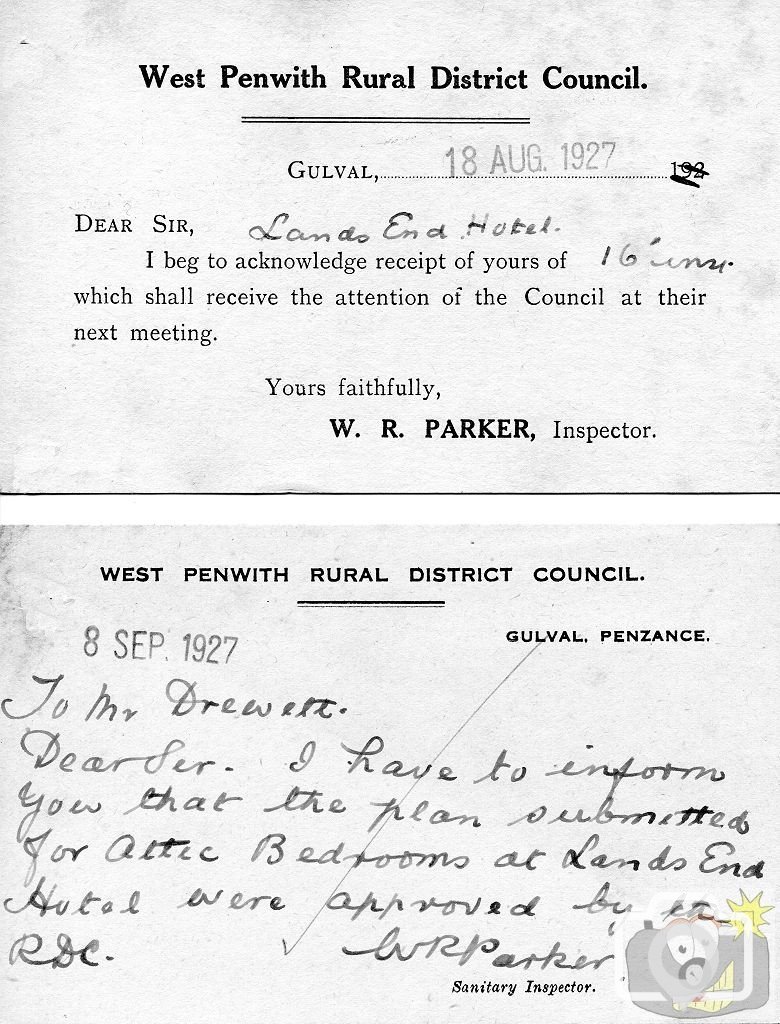 West Penwith Rural District Council.
GULVAL, 18 AUG. 1927 192
DEAR SIR, Lands End Hotel.
I beg to acknowledge receipt of yours of 16
which shall receive the attention of the Council at their
next meeting.
Yours faithfully,
W. R. PARKER, Inspector.
WEST PENWITH RURAL DISTRICT COUNCIL.
8 SEP. 1927
GULVAL, PENZANCE.
To Mr Drewett.
Dear Sir. I have to inform
you that the plan submitted
for Attic Bedrooms at Lands End
Hotel were approved by
RDC. WRParker
Sanitary Inspector.